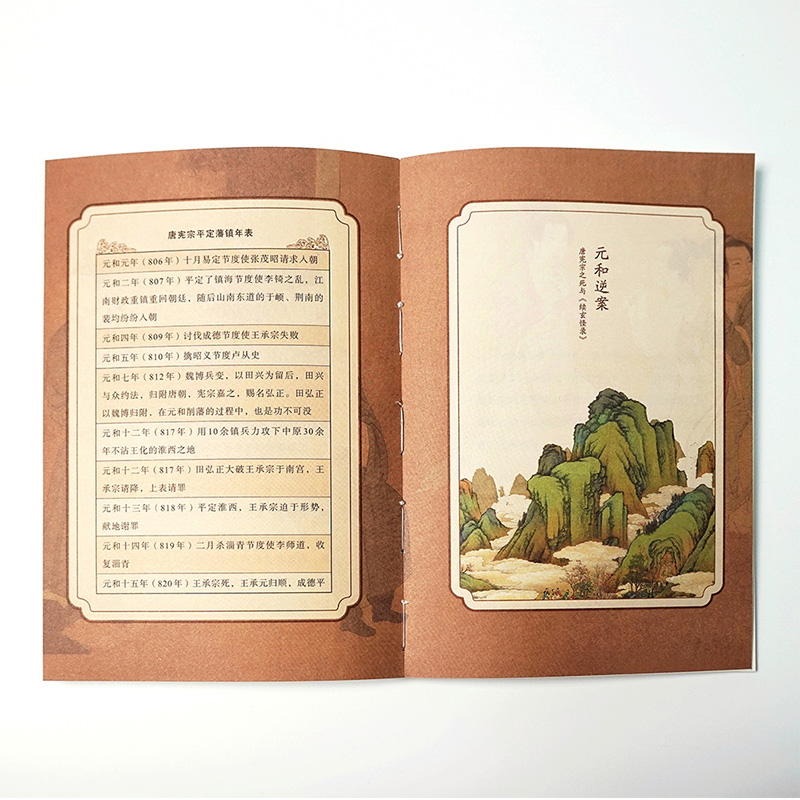 唐宪宗平定藩镇年表
元和元年（806年）十月易定节度使张茂昭请求入朝
元和二年（807年）平定了镇海节度使李锜之乱，江
南财政重镇重回朝廷，随后山南东道的于頔、荆南的
裴均纷纷入朝
元和四年（809年）讨伐成德节度使王承宗失败
元和五年（810年）擒昭义节度卢从史
元和七年（812年）魏博兵变，以田兴为留后，田兴
与众约法，归附唐朝，宪宗嘉之，赐名弘正。田弘正
以魏博归附，在元和削藩的过程中，也是功不可没
元和十二年（817年）用10余镇兵力攻下中原30余
年不沾王化的淮西之地
元和十二年（817年）田弘正大破王承宗于南宫，王
承宗请降，上表请罪
元和十三年（818年）平定淮西，王承宗迫于形势，
献地谢罪
元和十四年（819年）二月杀淄青节度使李师道，收
复淄青
元和十五年（820年）王承宗死，王承元归顺，成德平
元和逆案
唐宪宗之死与《续玄怪录》